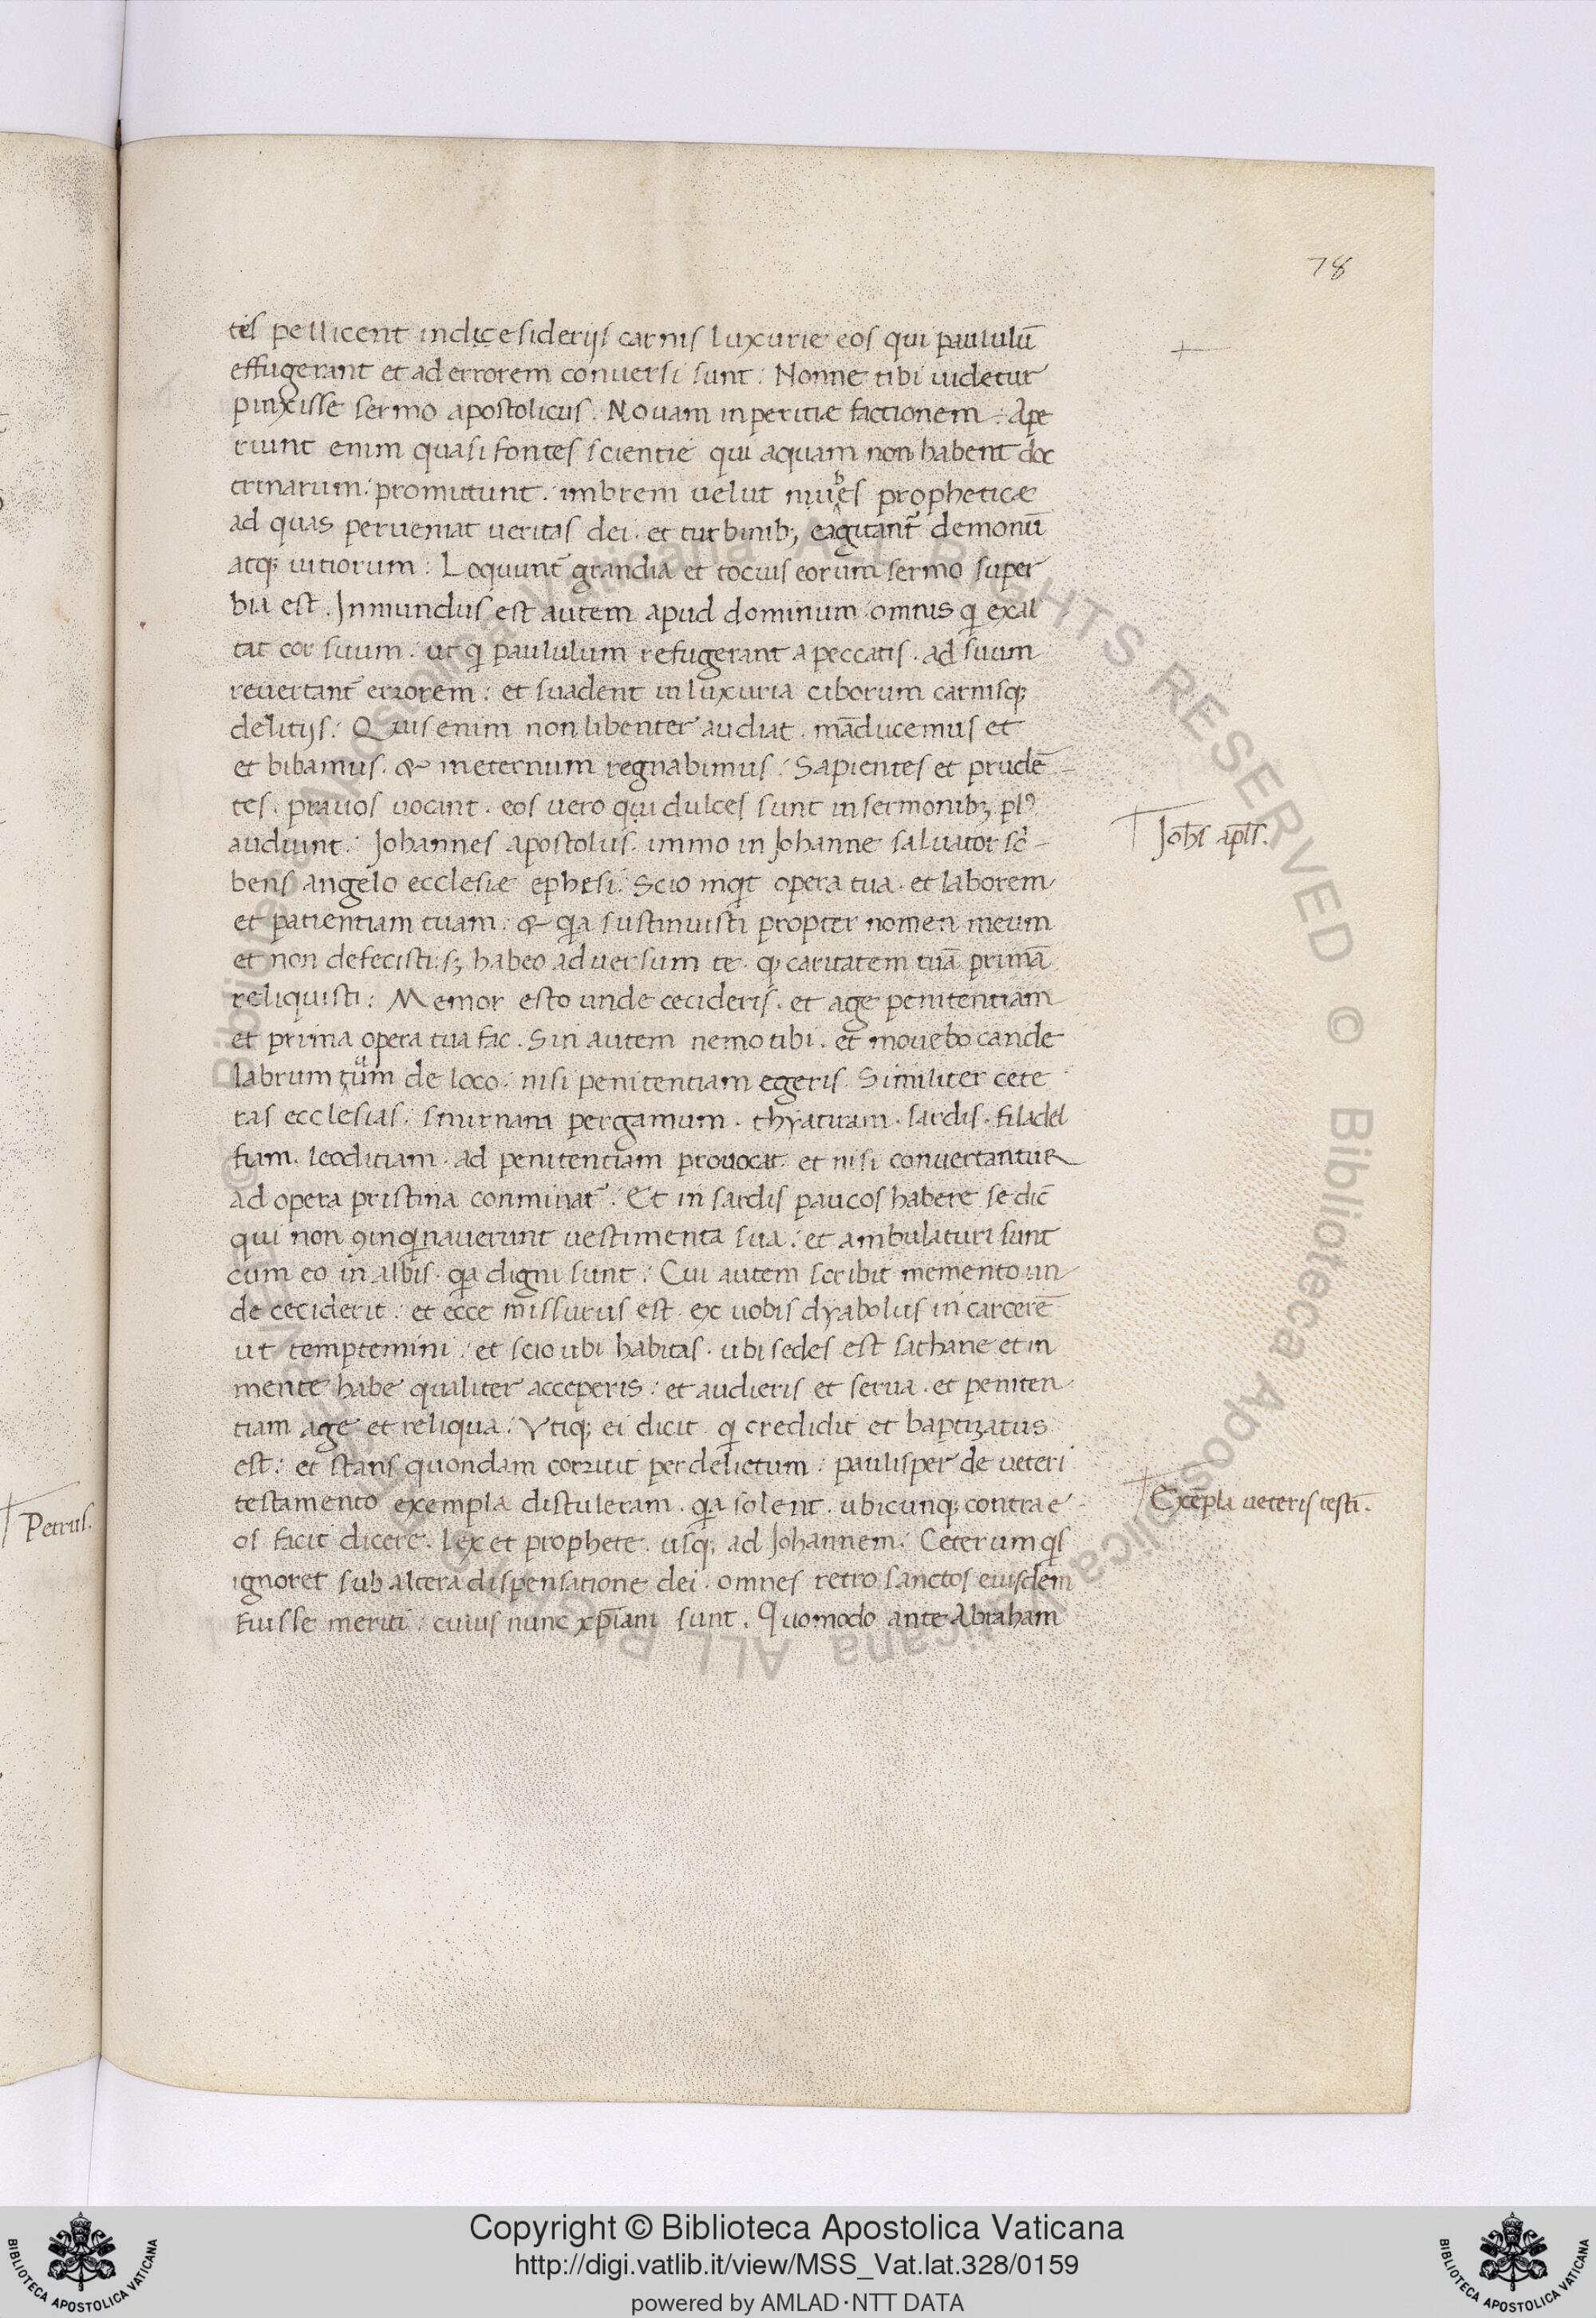 78
tes pellicent indicesiderijs carnis luxurie eos qui paululū
effugerant et ad errorem conuersi sunt : Nonne tibi uidetur
pinxisse sermo apostolicus . Nouam inperitiæ factionem : Ape
riunt enim quasi fontes scientie qui aquam non habent doc
trinarum : promittunt . imbrem uelut nubes propheticæ
ad quas perueniat ueritas dei . et turbinib; exagitant̄ demonū
atq; uitiorum : Loquunt̄ grandia et tocius eorum sermo super
bia est . Inmundus est autem apud dominum omnis q̄ exal
tat cor suum . ut q̄ paululum refugerant a peccatis . ad suum
reuertant̄ errorem : et suadent in luxuria ciborum carnisq;
delitijs : Quis enim non libenter audiat . māducemus et
et bibamus . & ineternum regnabimus : Sapientes et prudē
tes . prauos uocant . eos uero qui dulces sunt in sermonib; pl᾽
audiunt . Johannes apostolus . immo in Johanne saluator sc̄
Joh̄s ap̄ls .
bens angelo ecclesiæ ephesi : Scio inq̄t opera tua . et laborem
et patientiam tuam : & q̄a sustinuisti propter nomen meum
et non defecisti : s; habeo aduersum te . q; caritatem tuā primā
reliquisti : Memor esto unde cecideris . et age penitentiam
et prima opera tua fac . Sin autem nemo tibi . et mouebo cande
labrum tuum de loco : nisi penitentiam egeris . Similiter cete
ras ecclesias : smirnam pergamum . thyatiram . sardis . filadel
fiam . leoditiam . ad penitentiam prouocat . et nisi conuertantur
ad opera pristina conminat᾽ : Et in sardis paucos habere se dic̄
qui non 9inq̄nauerunt uestimenta sua : et ambulaturi sunt
cum eo in albis . q̄a digni sunt : Cui autem scribit memento un
de ceciderit : et ecce missurus est . ex uobis dyabolus in carcerē
ut temptemini : et scio ubi habitas . ubi sedes est sathane et in
mente habe qualiter acceperis : et audieris et serua . et peniten
tiam age et reliqua : Vtiq; ei dicit . q̄ credidit et baptizatus
est : et stans quondam corruit per delictum : paulisper de ueteri
testamento exempla distuleram . q̄a solent . ubicunq; contra e
Exēpla ueteris testī .
os facit dicere . lex et prophete . usq; ad Johannem : Ceterum q̄s
ignoret sub altera dispensatione dei . omnes retro sanctos eiusdem
fuisse meriti : cuius nunc xp̄iani sunt . Quomodo ante Abraham
Petrus .
© Biblioteca Apostolica Vaticana ALL RIGHTS RESERVED © Biblioteca Apostolica Vaticana ALL RIGHTS RESERVED
Copyright © Biblioteca Apostolica Vaticana
http://digi.vatlib.it/view/MSS_Vat.lat.328/0159
powered by AMLAD·NTT DATA
BIBLIOTECA APOSTOLICA VATICANA
BIBLIOTECA APOSTOLICA VATICANA